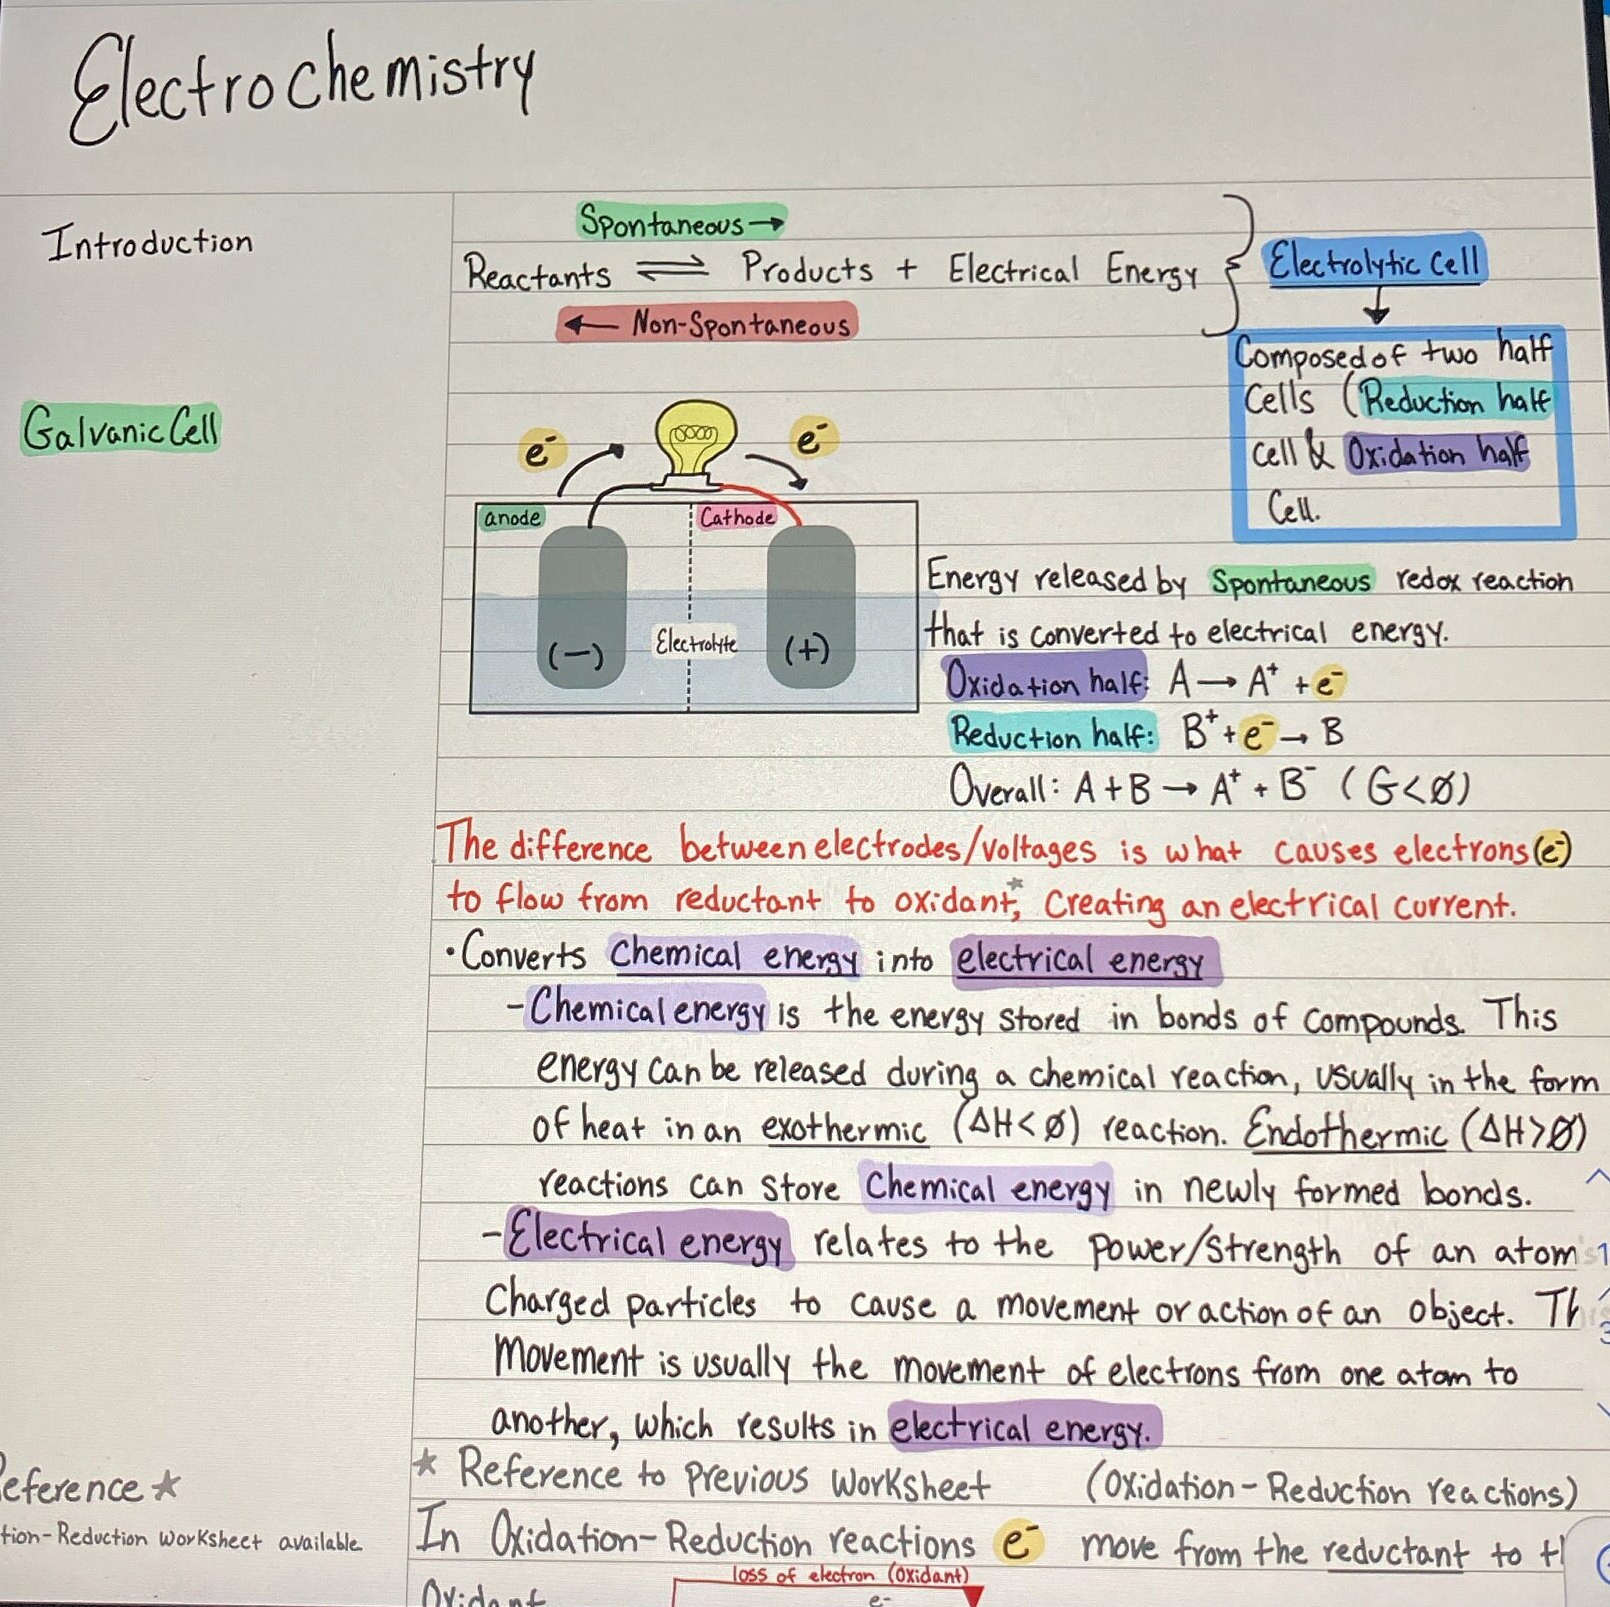 Electrochemistry
Introduction
Spontaneous →
Reactants ⇌ Products + Electrical Energy
← Non-Spontaneous
Electrolytic Cell
↓
Composed of two half
Cells (Reduction half
cell & Oxidation half
Cell.
Galvanic Cell
e⁻ e⁻
anode Cathode
(−) Electrolyte (+)
Energy released by Spontaneous redox reaction
that is converted to electrical energy.
Oxidation half: A → A⁺ + e⁻
Reduction half: B⁺ + e⁻ → B
Overall: A + B → A⁺ + B⁻ (G<Ø)
The difference between electrodes/voltages is what causes electrons (e⁻)
to flow from reductant to oxidant,* Creating an electrical current.
• Converts Chemical energy into electrical energy
- Chemical energy is the energy stored in bonds of compounds. This
energy can be released during a chemical reaction, usually in the form
of heat in an exothermic (ΔH<Ø) reaction. Endothermic (ΔH>Ø)
reactions can store Chemical energy in newly formed bonds.
- Electrical energy relates to the power/strength of an atom's
Charged particles to cause a movement or action of an object. This
Movement is usually the movement of electrons from one atom to
another, which results in electrical energy.
eference ★
tion-Reduction worksheet available
★ Reference to Previous Worksheet (Oxidation-Reduction reactions)
In Oxidation-Reduction reactions e⁻ move from the reductant to t
Oxidant
loss of electron (Oxidant)
e-